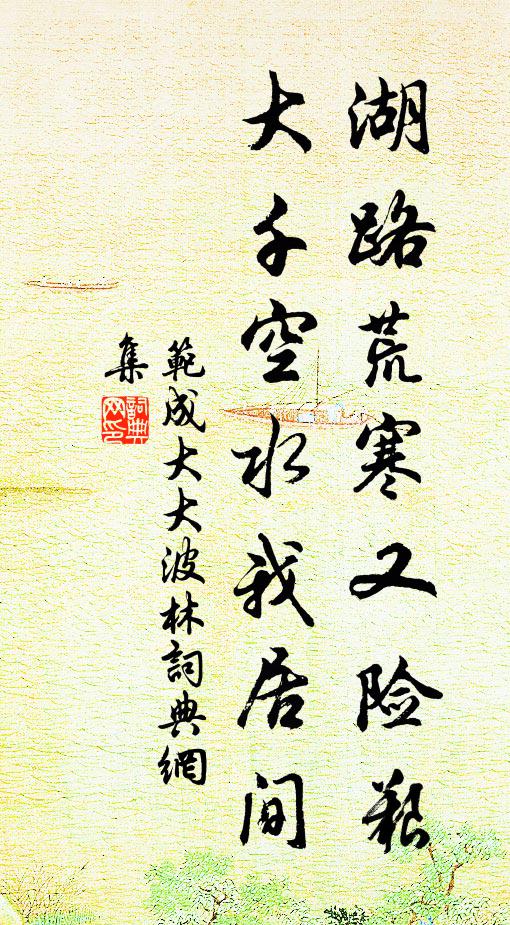 湖路荒寒又险艰
大千空水我居间
範成大大波林詞典網
集
詞典网印